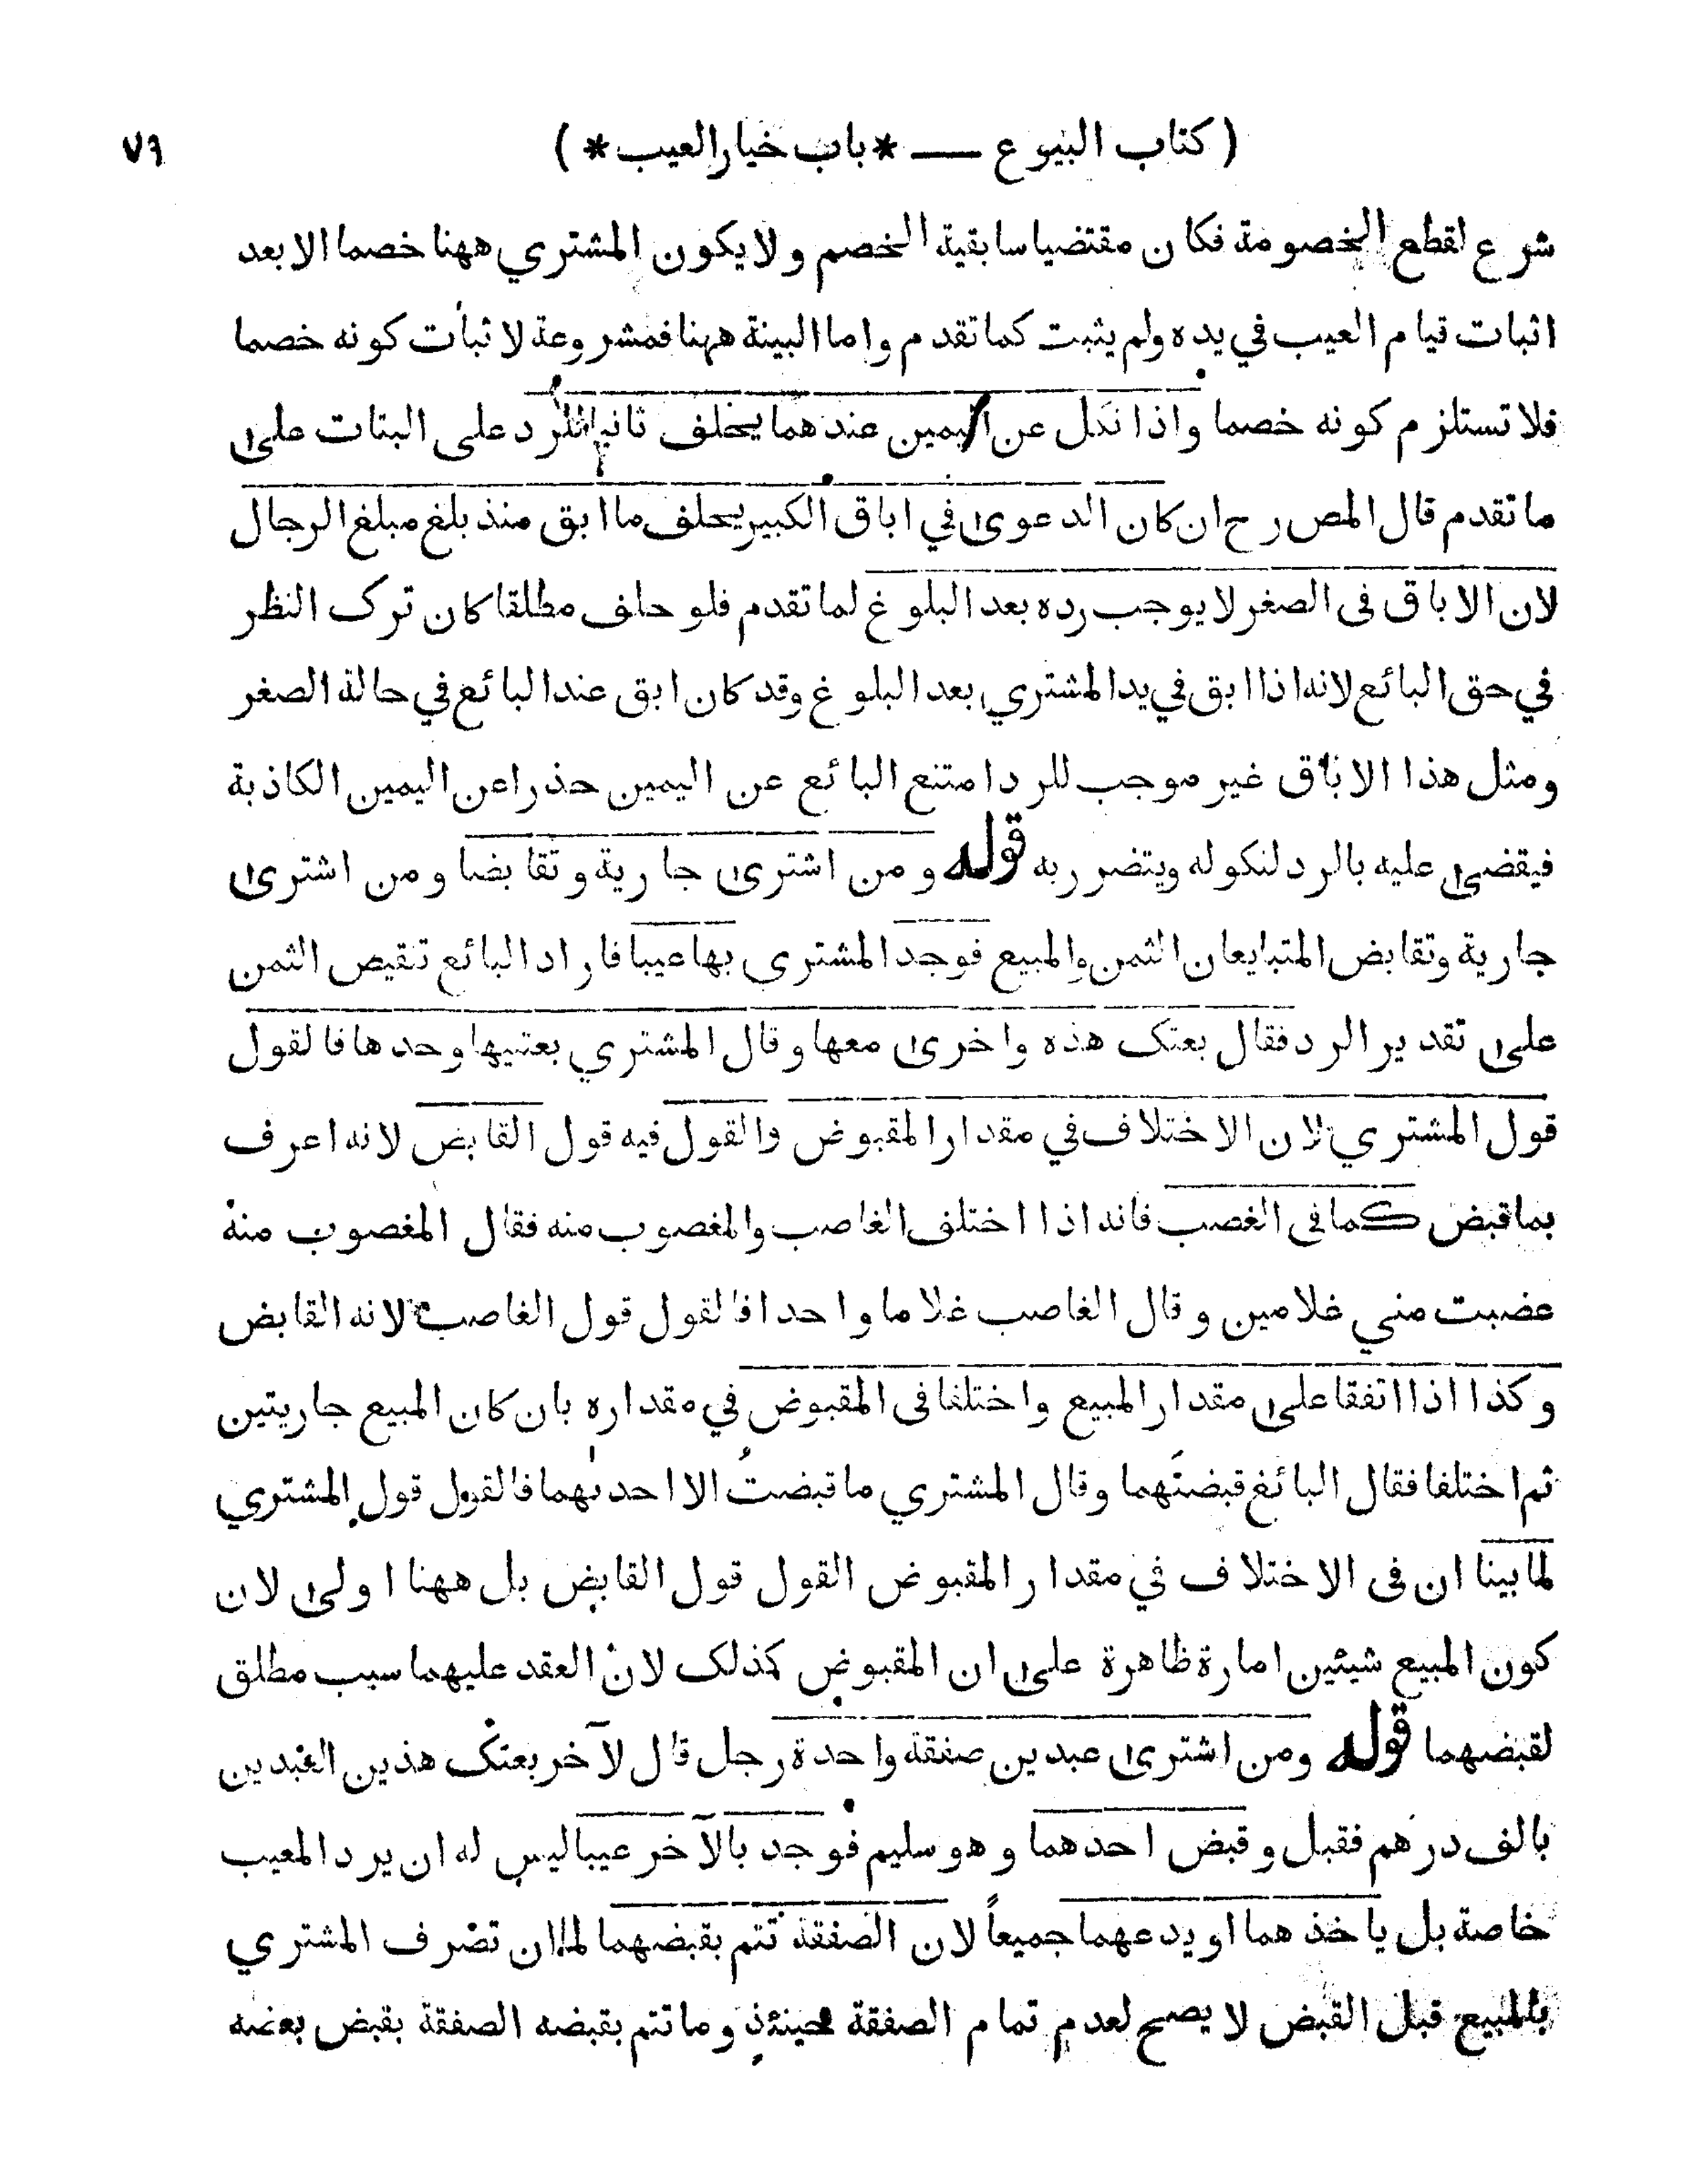 ( كتاب البيوع — * باب خيار العيب * ) ٧٩
شرع لقطع الخصومة فكان مقتضيا سابقية الخصم ولا يكون المشتري ههنا خصما الا بعد
اثبات قيام العيب في يده ولم يثبت كما تقدم واما البينة ههنا فمشروعة لاثبات كونه خصما
فلا تستلزم كونه خصما واذا نكل عن اليمين عندهما يحلف ثانيا للرد على البتات على
ما تقدم قال المص رح ان كان الدعوى في اباق الكبير يحلف ما ابق منذ بلغ مبلغ الرجال
لان الاباق في الصغر لا يوجب رده بعد البلوغ لما تقدم فلو حلف مطلقا كان ترك النظر
في حق البائع لانه اذا ابق في يد المشتري بعد البلوغ وقد كان ابق عند البائع في حالة الصغر
ومثل هذا الاباق غير موجب للرد امتنع البائع عن اليمين حذرا عن اليمين الكاذبة
فيقضى عليه بالرد لنكوله ويتضرر به قوله ومن اشترى جارية وتقابضا ومن اشترى
جارية وتقابض المتبايعان الثمن والمبيع فوجد المشتري بها عيبا فاراد البائع تنقيص الثمن
على تقدير الرد فقال بعتك هذه واخرى معها وقال المشتري بعتنيها وحدها فالقول
قول المشتري لان الاختلاف في مقدار المقبوض والقول فيه قول القابض لانه اعرف
بما قبض كما في الغصب فانه اذا اختلف الغاصب والمغصوب منه فقال المغصوب منه
غصبت مني غلامين وقال الغاصب غلاما واحدا فالقول قول الغاصب لانه القابض
وكذا اذا اتفقا على مقدار المبيع واختلفا في المقبوض في مقداره بان كان المبيع جاريتين
ثم اختلفا فقال البائع قبضتَهما وقال المشتري ما قبضتُ الا احدٰهما فالقول قول المشتري
لما بينا ان في الاختلاف في مقدار المقبوض القول قول القابض بل ههنا اولى لان
كون المبيع شيئين امارة ظاهرة على ان المقبوض كذلك لان العقد عليهما سبب مطلق
لقبضهما قوله ومن اشترى عبدين صفقة واحدة رجل قال لآخر بعتك هذين العبدين
بالف درهم فقبل وقبض احدهما وهو سليم فوجد بالآخر عيبا ليس له ان يرد المعيب
خاصة بل ياخذهما او يدعهما جميعاً لان الصفقة تتم بقبضهما لما ان تصرف المشتري
بالمبيع قبل القبض لا يصح لعدم تمام الصفقة حينئذ وما تتم بقبضه الصفقة بقبض بعضه